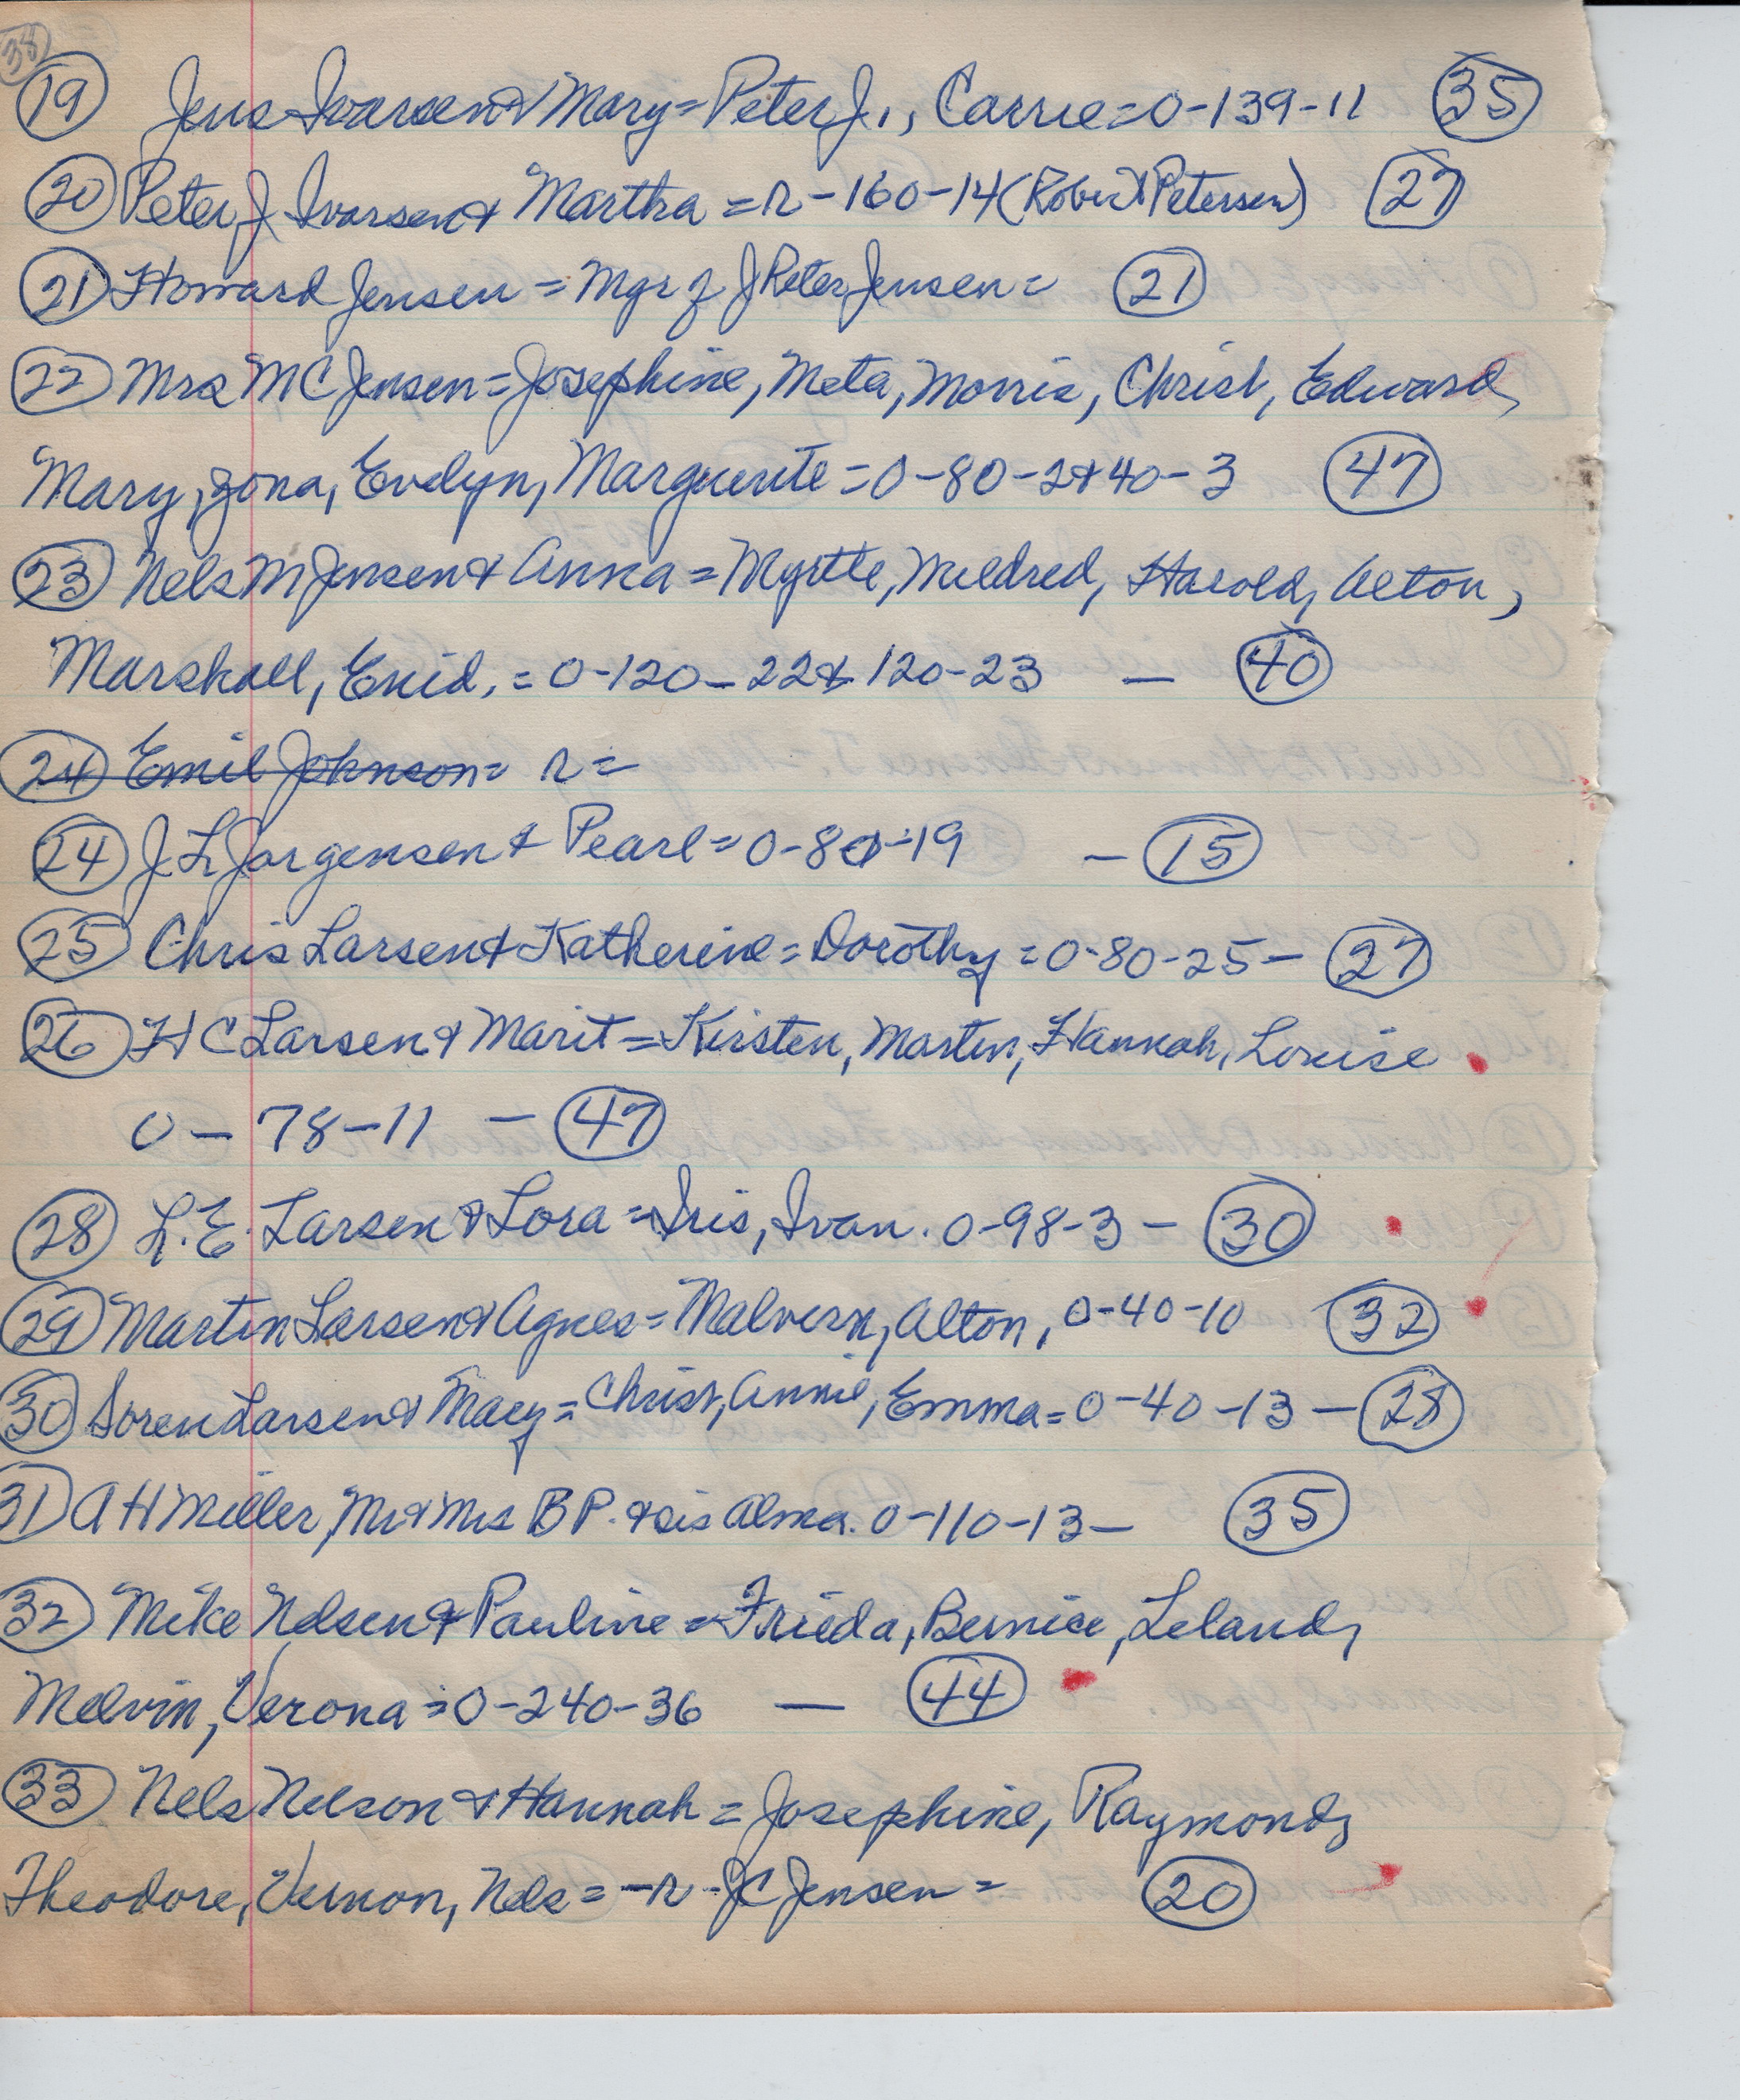 38
19 Jens Ivarsen & Mary = Peter J., Carrie = 0-139-11 35
20 Peter J Ivarsen & Martha = r-160-14 (Robert Petersen) 27
21 Howard Jensen = Mgr of J Peter Jensen = 21
22 Mrs M C Jensen = Josephine, Meta, Morris, Christ, Edward,
Mary, Zona, Evelyn, Marguerite = 0-80-2 & 40-3 47
23 Nels M Jensen & Anna = Myrtle, Mildred, Harold, Alton,
Marshall, Enid. = 0-120-22 & 120-23 — 40
24 Emil Johnson = r =
24 J L Jorgensen & Pearl = 0-80-19 — 15
25 Chris Larsen & Katherine = Dorothy = 0-80-25 — 27
26 H C Larsen & Marit = Kirsten, Martin, Hannah, Louise
0 - 78-11 — 47
28 L. E. Larsen & Lora = Iris, Ivan. 0-98-3 — 30
29 Martin Larsen & Agnes = Malvern, Alton, 0-40-10 32
30 Soren Larsen & Mary = Christ, Annie, Emma = 0-40-13 — 28
31 A H Miller, Mr & Mrs B P. & sis Alma. 0-110-13 — 35
32 Mike Nelsen & Pauline = Frieda, Bernice, Leland,
Melvin, Verona = 0-240-36 — 44
33 Nels Nelson & Hannah = Josephine, Raymond,
Theodore, Vernon, Nels = -r- J C Jensen = 20